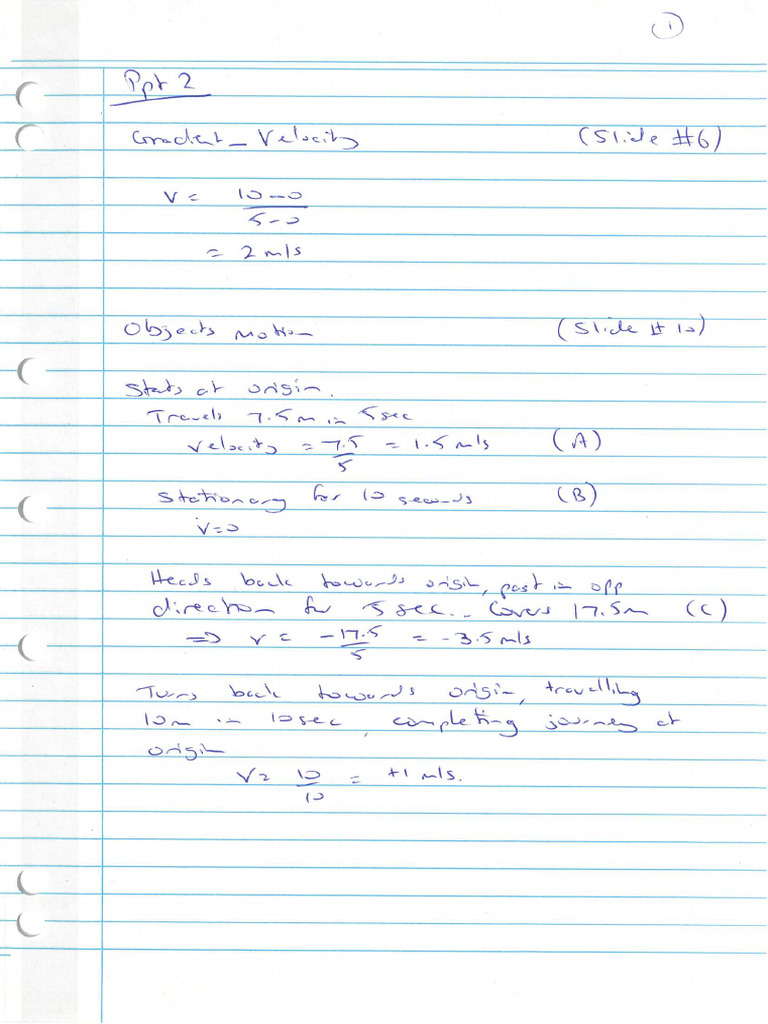 1
Ppt 2
Gradient – Velocity (Slide #6)
v = 10-0
5-0
= 2 m/s
Objects Motion (Slide #10)
Starts at origin.
Travels 7.5m in 5sec
Velocity = 7.5 = 1.5 m/s (A)
5
Stationary for 10 seconds (B)
v=0
Heads back towards origin, past in opp
direction for 5 sec. Covers 17.5m (C)
⇒ v = -17.5 = -3.5 m/s
5
Turns back towards origin, travelling
10m in 10sec, completing journey at
origin
V= 10 = +1 m/s.
10